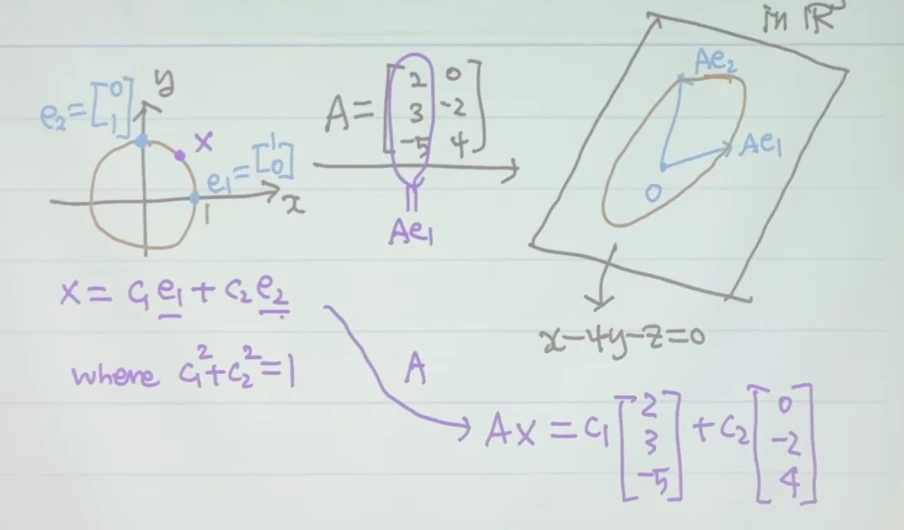 in ℝ³
y
e₂ = [0 1]
x
e₁ = [1 0]
x
1
A = [2 0
3 -2
-5 4]
Ae₁
Ae₂
Ae₁
0
x-4y-z=0
x = c₁e₁ + c₂e₂
where c₁²+c₂²=1
A
Ax = c₁ [2 3 -5] + c₂ [0 -2 4]